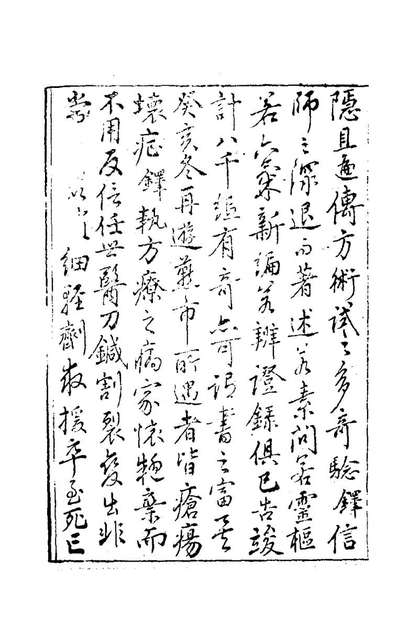 隱且遍傳方術試之多奇驗鐸信
師之深退而著述若素問若靈樞
若六氣新編若辨證錄俱已告竣
計八千紙有奇亦可謂書之富矣
癸亥冬再遊燕市所遇者皆瘡瘍
壞症鐸執方療之病家懷疑棄而
不用反信任世醫刀鍼割裂變出非
常 細 劑救援卒至死亡